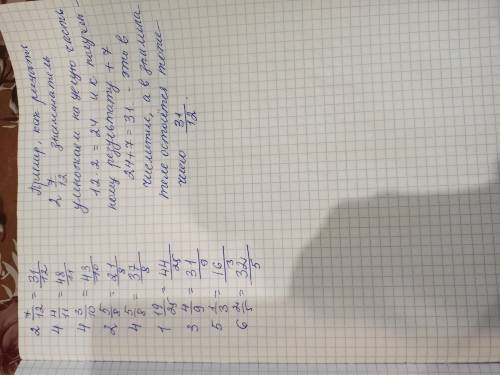 2 7/12 = 31/12
4 4/11 = 48/11
4 3/10 = 43/10
2 5/8 = 21/8
4 5/8 = 37/8
1 19/25 = 44/25
3 4/9 = 31/9
5 1/3 = 16/3
6 2/5 = 32/5
Пример, как решать
2 7/12 знаменатель
умножаем на целую часть
12 · 2 = 24 и к получен-
ному результату + 7
24 + 7 = 31 - это в
числителе, а в знамена-
теле остаётся тоже
число 31/12.